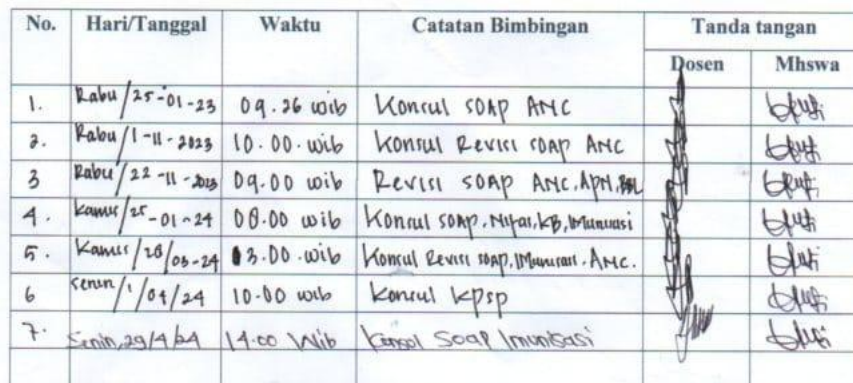 No. Hari/Tanggal Waktu Catatan Bimbingan Tanda tangan
Dosen Mhswa
1. Rabu/25-01-23 09.26 wib Konsul SOAP ANC
2. Rabu/1-11-2023 10.00.wib Konsul Revisi SOAP ANC
3 Rabu/22-11-2023 09.00 wib Revisi SOAP ANC, APN, BBL
4. Kamis/25-01-24 08.00 wib Konsul SOAP, Nifas, KB, Imunisasi
5. Kamis/28/03-24 13.00.wib Konsul Revisi SOAP, Imunisasi. ANC.
6 Senin/1/04/24 10.00 wib Konsul KPSP
7. Senin, 29/4/24 14.00 Wib Konsul SOAP Imunisasi